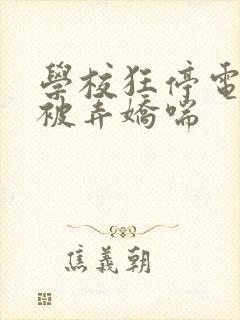 學校狂停電
被弄嬌喘
焦義朝